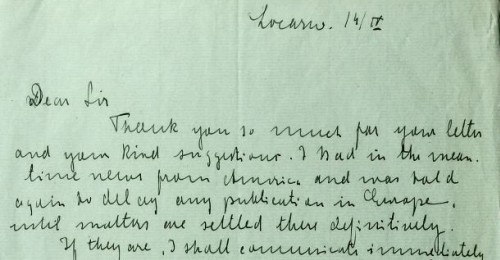 Locarno. 14/IV
Dear Sir
Thank you so much for your letter
and your kind suggestions. I had in the mean-
time news from America and was told
again to delay any publication in Europe,
until matters are settled there definitively.
If they are, I shall communicate immediately